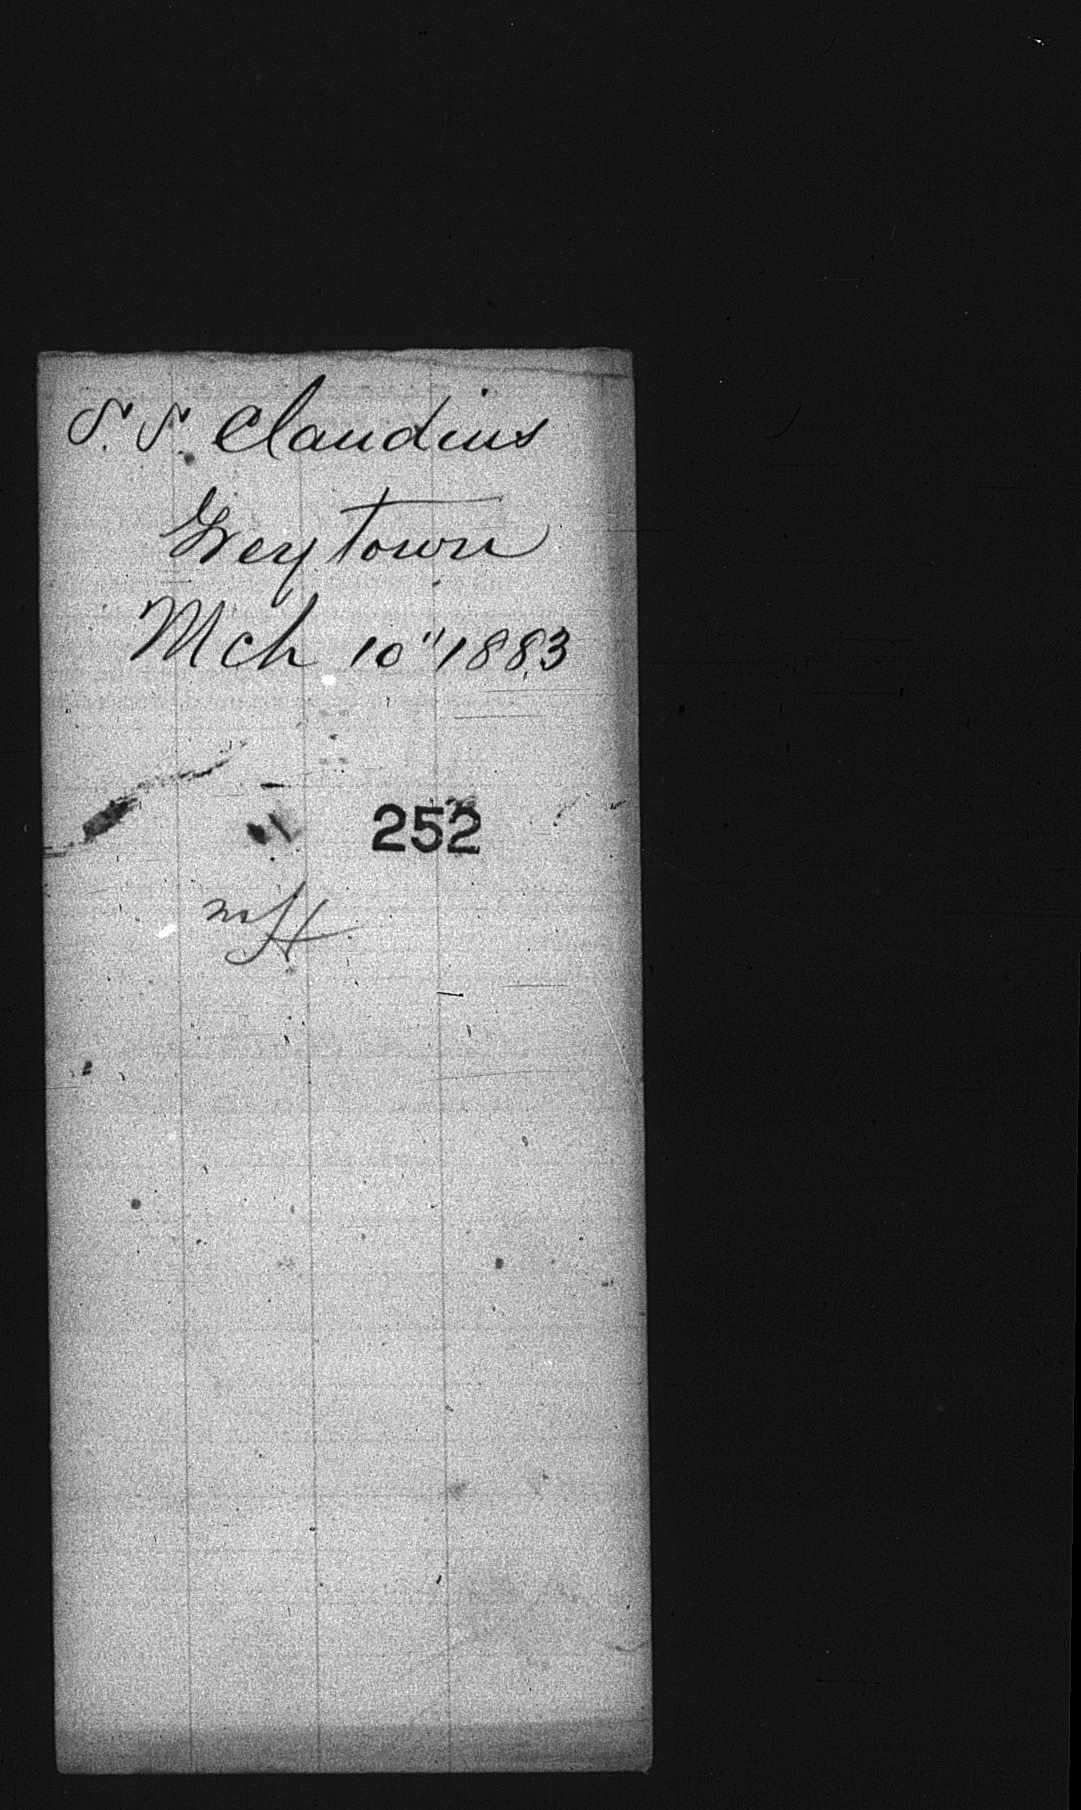 S. S. Claudius
Greytown
Mch 10" 1883
252